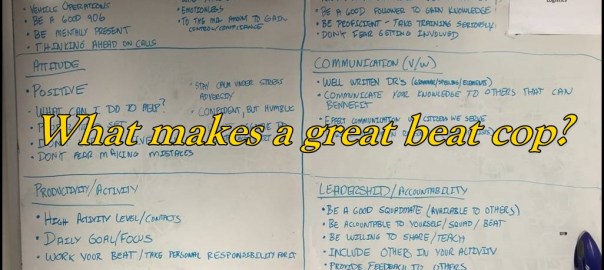 VEHICLE OPERATIONS
BE A GOOD
BE MENTALLY PRESENT
THINKING AHEAD ON CALLS
EMOTIONLESS
TO THE MIN AMOUNT TO GAIN
BE A GOOD FOLLOWER TO GAIN KNOWLEDGE
BE PROFICIENT - TAKE TRAINING SERIOUSLY
DON'T FEAR GETTING INVOLVED
ATTITUDE
• POSITIVE
• WHAT CAN I DO TO HELP?
• DON'T FEAR MAKING MISTAKES
• STAY CALM UNDER STRESS
ADVERSITY
• CONFIDENT, BUT HUMBLE
COMMUNICATION (V/W)
• WELL WRITTEN DR'S (GRAMMAR/SPELLING/ELEMENTS)
• COMMUNICATE YOUR KNOWLEDGE TO OTHERS THAT CAN
BENNEFIT
What makes a great beat cop?
PRODUCTIVITY/ACTIVITY
• HIGH ACTIVITY LEVEL/CONTACTS
• DAILY GOAL/FOCUS
• WORK YOUR BEAT/TAKE PERSONAL RESPONSIBILITY FOR IT
LEADERSHIP/ACCOUNTABILITY
• BE A GOOD SQUADMATE (AVAILABLE TO OTHERS)
• BE ACCOUNTABLE TO YOURSELF/SQUAD/BEAT
• BE WILLING TO SHARE/TEACH
• INCLUDE OTHERS IN YOUR ACTIVITY
• PROVIDE FEEDBACK TO OTHERS